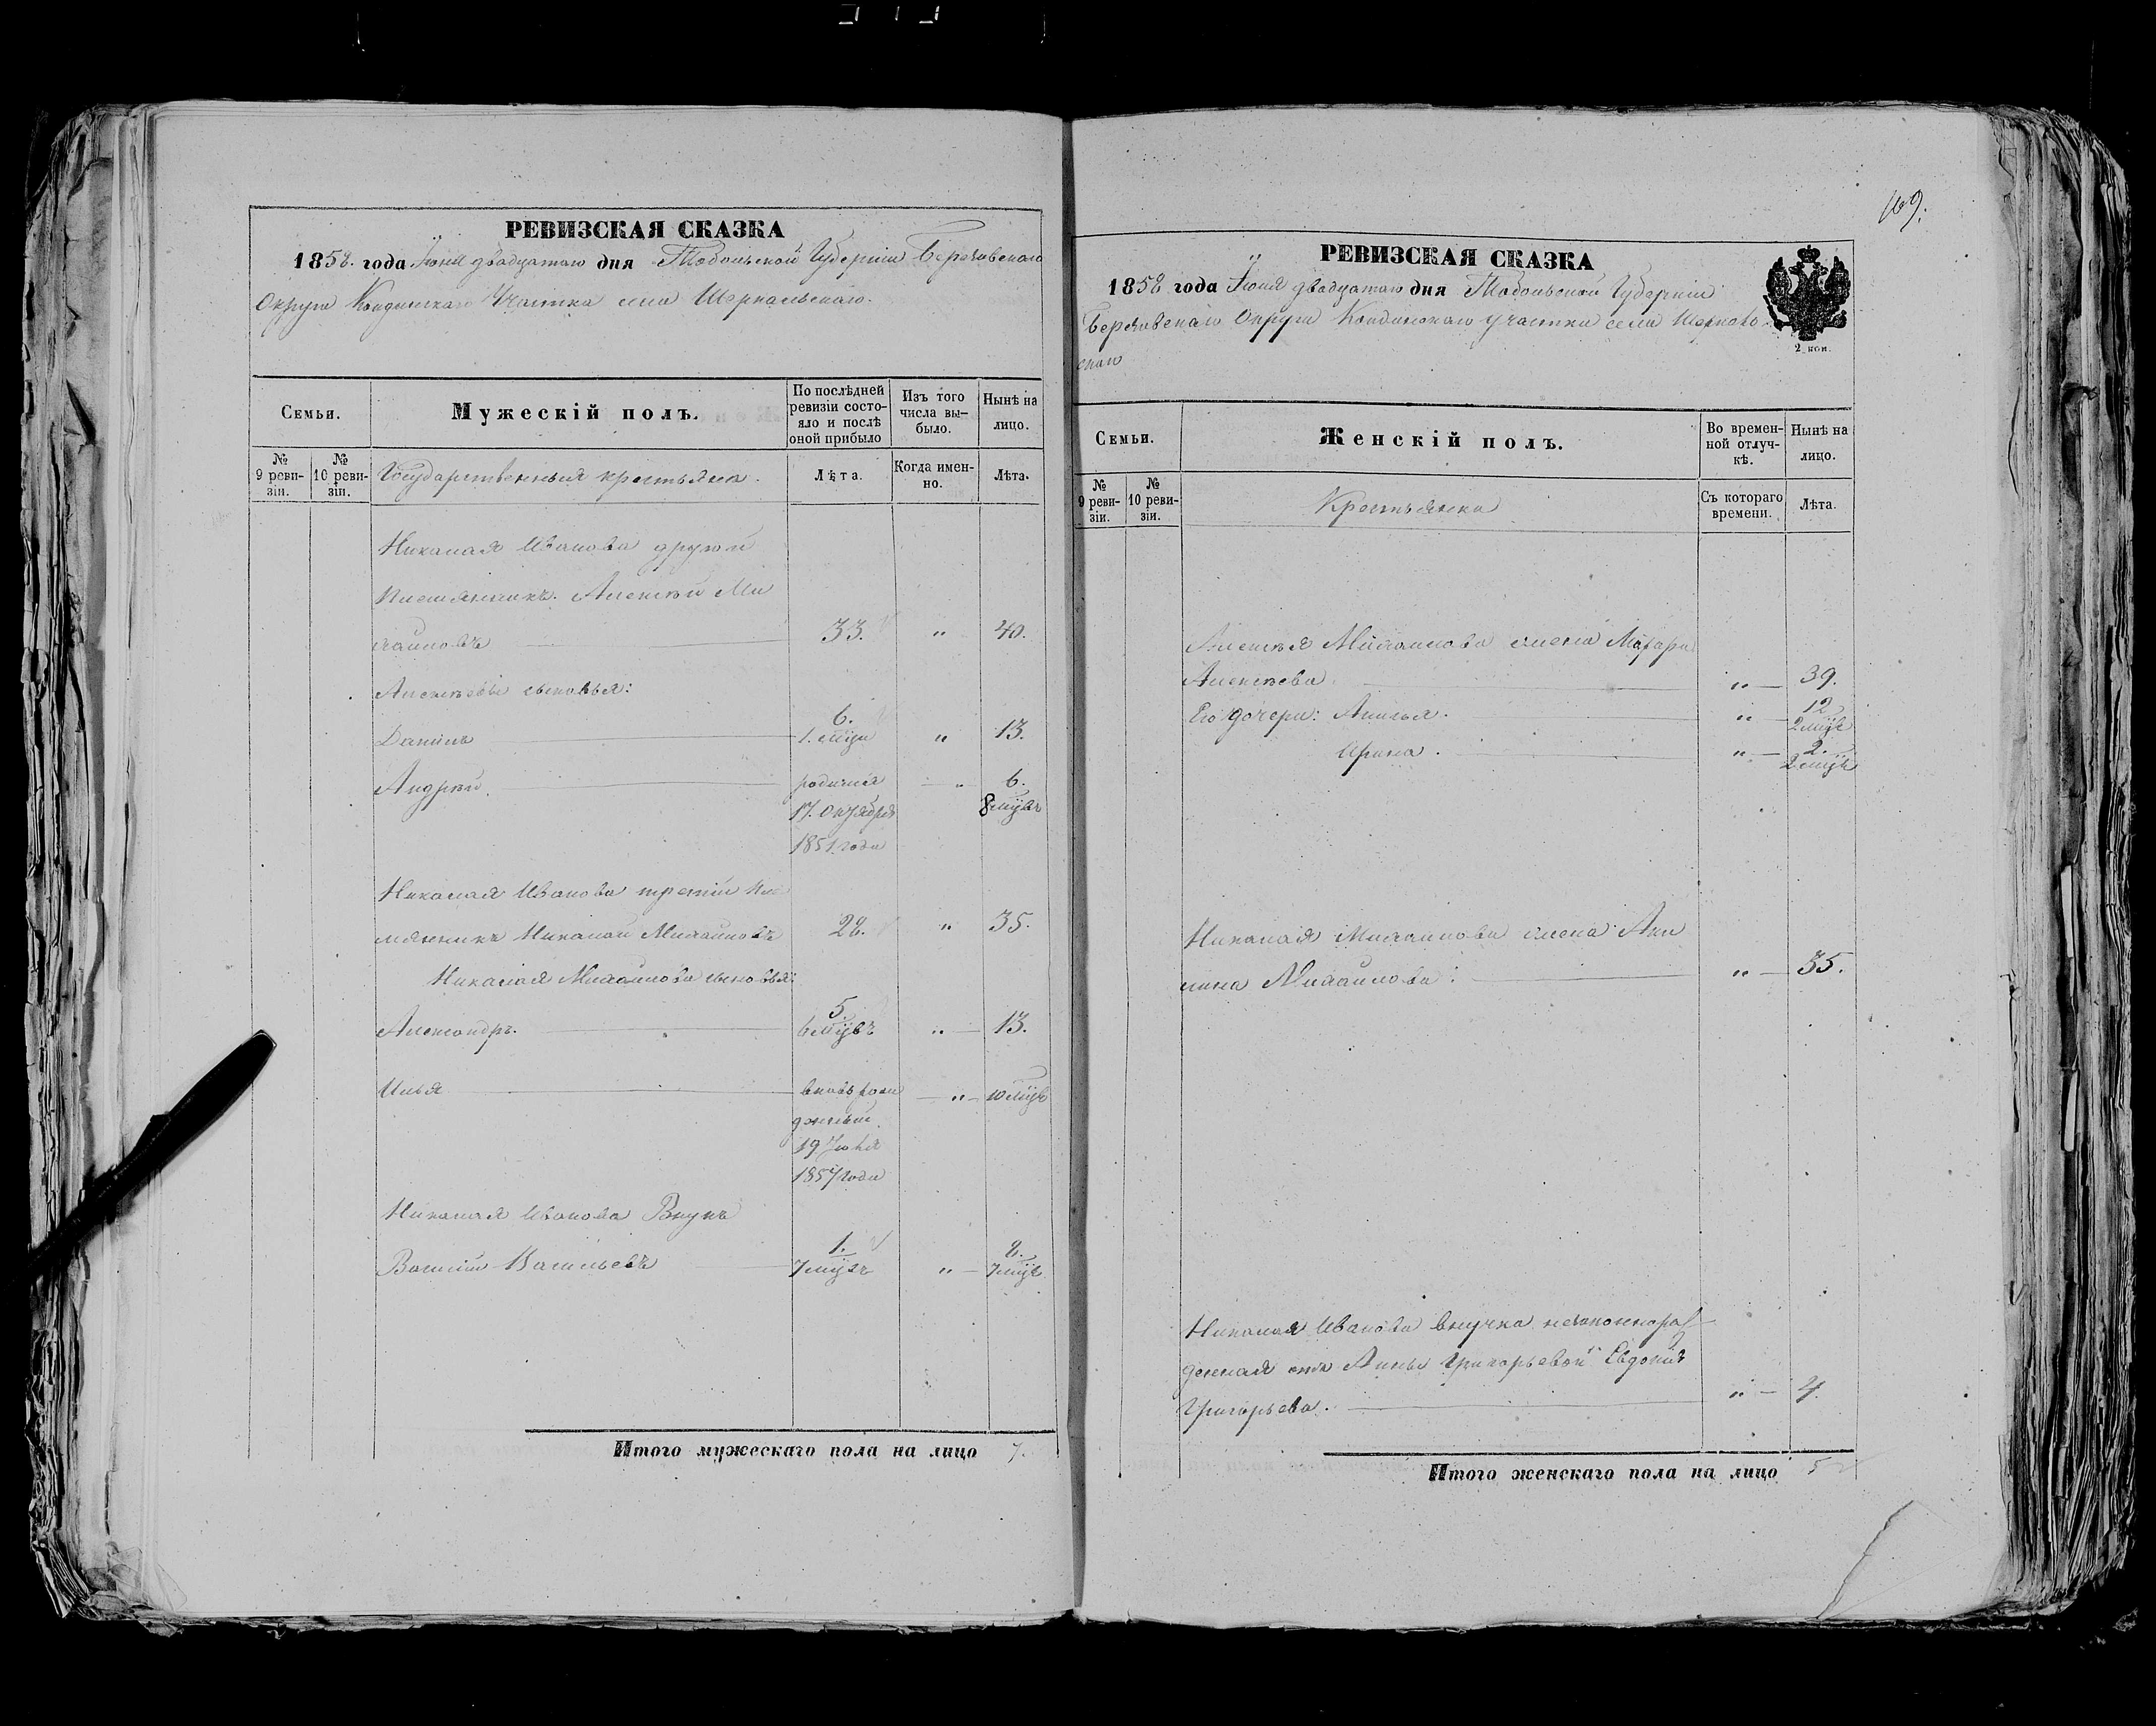 РЕВИЗСКАЯ СКАЗКА
1858. года Іюня двадцатаго дня Тобольской Губерніи Березовскаго
Округа Кондинскаго Участка села Шеркальскаго.
Семьи.
Мужескій полъ.
По послѣдней
ревизіи состо-
яло и послѣ
оной прибыло
Изъ того
числа вы-
было.
Нынѣ на
лицо.
№
9 реви-
зіи.
№
10 реви-
зіи.
Государственныя крестьяна.
Лѣта.
Когда имен-
но.
Лѣта.
Николая Иванова другой
племянникъ. Алексѣй Ми
хайловъ 33. " 40.
Алексѣевы сыновья:
Данилъ 6. 1. мѣця " 13.
Андрѣй. родился " 6.
17. Октября 8 мѣцъ
1851 года
Николая Иванова третій пле
мянникъ Николай Михайловъ 28. " 35.
Николая Михайлова сыновья:
Александръ. 5. 6 мѣцъ " 13.
Илья вновь рож " 10 мѣцъ
денный.
19 Іюля
1857 года
Николая Иванова Внукъ
Василій Васильевъ 1. 7 мѣцъ " 8. 7 мѣцъ
Итого мужескаго пола на лицо 7.
169.
РЕВИЗСКАЯ СКАЗКА
1858 года Іюня двадцатаго дня Тобольской Губерніи
Березовскаго Округа Кондинскаго участка села Шеркаль-
скаго
2 коп.
Семьи.
Женскій полъ.
Во времен-
ной отлуч-
кѣ.
Нынѣ на
лицо.
№
9 реви-
зіи.
№
10 реви-
зіи.
Крестьянки
Съ котораго
времени.
Лѣта.
Алексѣя Михайлова жена
Алексѣева. " 39.
Его дочери: Апилья. " 12 2 мѣцъ
Арина. " 2. 2 мѣцъ
Николая Михайлова жена Аки
лина Михайлова: " 35.
Николая Иванова внучка незаконнорож
денная отъ Анны Григорьевой Евдокія
Григорьева. " 4.
Итого женскаго пола на лицо 5